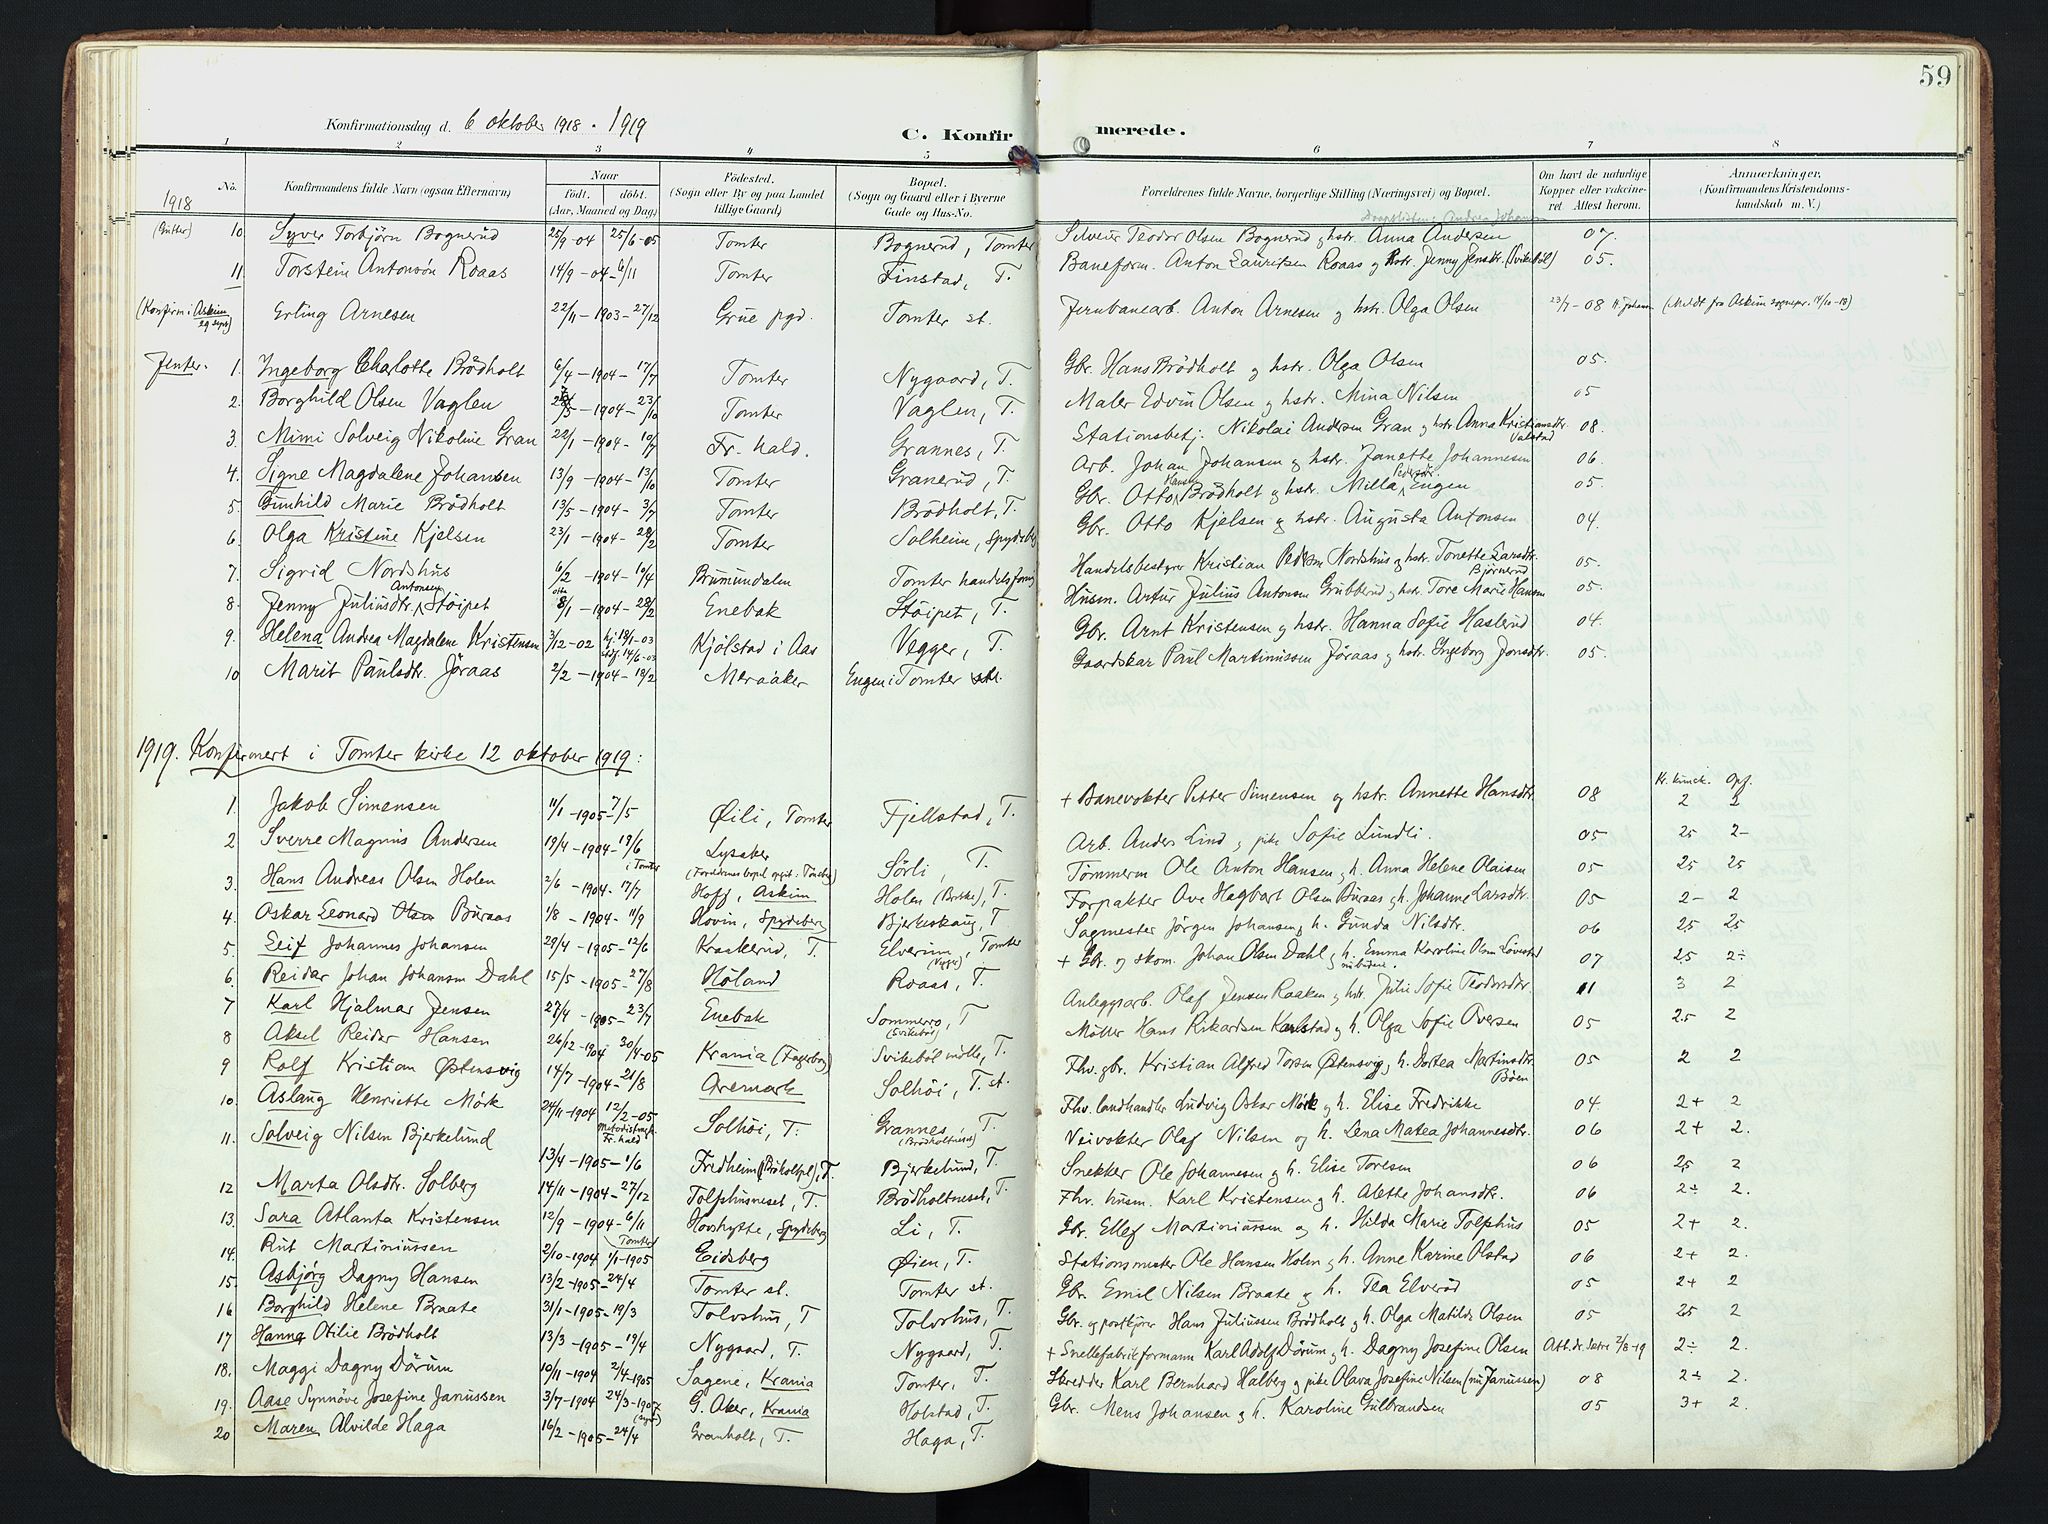 59
Konfirmationsdag d. 6 oktober 1918 . 1919
C. Konfirmerede.
1 2 3 4 5 6 7 8
No. Konfirmandens fulde Navn (ogsaa Efternavn) Naar født. døbt. (Aar, Maaned og Dag) Fødested. (Sogn eller By og paa Landet tillige Gaard) Bopæl. (Sogn og Gaard eller i Byerne Gade og Hus-No. Forældrenes fulde Navne, borgerlige Stilling (Næringsvei) og Bopæl. Om havt de naturlige Kopper eller vaccineret. Attest herom. Anmærkninger, (Konfirmandens Kristendomskundskab m. V.)
1918
(Gutter) 10 Syver Torbjörn Bognerud 25/9-04 25/6-05 Tomter Bognerud, Tomter Silveur Teodor Olsen Bognerud og hstr. Anna Andersen 07.
11 Torstein Antonsön Roaas 14/9-04-6/11 Tomter Finstad, T. Baneform. Anton Lauritsen Roaas og hstr. Jenny Jensdtr. (Svikebøl) 05.
(Konfirm. i Askim 29 sept) Erling Arnesen 22/11-1903-27/12 Grue pgd. Tomter st. Jernbanearb. Anton Arnesen og hstr. Olga Olsen 23/7-08 (Meldt fra Askim sognepr. 14/10-18)
Jenter. 1. Ingeborg Charlotte Brødholt 6/4-1904-17/7 Tomter Nygaard, T. Gbr. Hans Brødholt og hstr. Olga Olsen 05.
2. Borghild Olsen Vaglen 1904-23/10 Tomter Vaglen, T. Maler Edvin Olsen og hstr. Mina Nilsen 05
3. Mimi Solveig Nikoline Gran 22/1-1904-10/7 Fr. hald. Grannes, T. Stationsbetj. Nikolai Andersen Gran og hstr. Anna Kristiansdtr. Valstad 08.
4. Signe Magdalene Johansen 13/9-1904-13/10 Tomter Granerud, T. Arb. Johan Johansen og hstr. Janette Johannesen 06.
5. Gunhild Marie Brødholt 13/5-1904-3/7 Tomter Brödholt, T. Gbr. Otto Hansen Brødholt og hstr. Milla Pedersdtr. Engen 05.
6 Olga Kristine Kjelsen 23/1-1904-28/2 Tomter Solheim, Spydeberg Gbr. Otto Kjelsen og hstr. Augusta Antonsen 04.
7. Sigrid Nordshus 6/2-1904-10/4 Brumundalen Tomter handelsforng Handelsbestyrer Kristian Pedersen Nordshus og hstr. Tonette Larsdtr. Bjørnerud 05.
8. Jenny Juliusdtr. Antonsen Støipet 8/1-1904-28/2 Enebak Støipet, T. Husm. Artur Julius Antonsen Grubberud og hstr. Tore Marie Hansen 05.
9. Helena Andrea Magdalene Kristensen 3/12-02 hj. 19/1-03 stdf. 14/6-03 Kjølstad i Aas Vegger, T. Gbr. Arnt Kristensen og hstr. Hanna Sofie Haslerud 04.
10 Marit Paulsdtr. Jøraas 2/2-1904-18/2 Meraaker Engen i Tomter Gaardskar Paul Martinussen Jøraas og hstr. Ingeborg Jonsdtr. 05.
1919. Konfirmert i Tomter kirke 12 oktober 1919:
Kr. kunsk. Opf.
1. Jakob Simensen 11/1-1905-7/5 Øili, Tomter Fjellstad, T. + Banevokter Petter Simensen og hstr. Annette Hansdtr. 08 2 2
2 Sverre Magnus Andersen 19/4-1904-19/6 i Tomter Lysaker Sørli, T. Arb. Anders Lind og pike Sofie Lundli. 05 25 2-
3. Hans Andreas Olsen Holen 2/6-1904-17/7 Hoff, Askim Holen (Brekke), T. Tömmerm Ole Anton Hansen og h. Anna Helene Olaisen 05 25 25
4. Oskar Leonard Olsen Buraas 1/8-1904-11/9 Hovin, Spydeberg Bjerkeskaug, T Forpakter Ove Hagbart Olsen Buraas og h. Johanne Larsdtr. 05 2- 2
5. Leif Johannes Johansen 29/4-1905-12/6 Kraakerud, T. Elverum, Tomter (Vegger) Sagmester Jørgen Johansen og h. Gunda Nilsdtr. 06 25 25
6. Reidar Johan Johansen Dahl 15/5-1905-27/8 Høland Roaas, T. + Gbr. og skom. Johan Olsen Dahl og h. Emma Karoline Olsen Løvestad 07 25 2÷
7 Karl Hjalmar Jensen 27/4-1905-23/7 Enebak Sommerro, T (Svikebøl) Anleggsarb. Olaf Jensen Raaken og hstr. Julie Sofie Teodorsdtr. 11 3 2
8 Aksel Reidar Hansen 26/12-1904 30/4-05 Krania (Fagerborg) Svikebøl mölle, T. Møller Hans Rikardsen Karlstad og h. Olga Sofie Oversen 05 25 2
9 Rolf Kristian Østensvig 14/7-1904-21/8 Aremark Solhöi, T. st. Fhv. gbr. Kristian Alfred Torsen Østensvig og h. Dortea Martinsdtr. Bøen 05 2 2
10. Aslaug Henriette Mörk 24/11-1904 12/2-05 Metodistmgh. Fr. hald Solhöi, T. Grannes, T. (Brødholtneset) Fhv. landhandler Ludvig Oskar Mörk og h. Elise Fredrikke 04. 2+ 2
11. Solveig Nilsen Bjerkelund 13/4-1905-1/6 Fredheim (Brøholtspl), T. Bjerkelund, T. Veivokter Olaf Nilsen og h. Lena Matea Johannesdtr. 06 2+ 2.
12 Marta Olsdtr. Solberg 14/11-1904-27/12 Tolphusneset, T. Brödholtneset, T. Snekker Ole Johannesen og h. Elise Toresen 06 25 2
13. Sara Atlanta Kristensen 12/9-1904-6/11 Tomter Hovshytte, Spydeberg Li, T. Fhv. husm. Karl Kristensen og h. Alette Johansdtr. 06 2÷ 2.
14. Rut Martiniussen 2/10-1904 1/1-1905 Eidsberg Øien, T. Gbr. Ellef Martiniussen og h. Hilda Marie Tolphus 05 2+ 2.
15. Asbjörg Dagny Hansen 13/2-1905-24/4 Tomter st. Tomter st. Stationsmester Ole Hansen Holm og h. Anne Karine Olstad 06 2+ 2.
16 Borghild Helene Braate 31/1-1905-19/3 Tolvshus, T Tolvshus, T. Gbr. Emil Nilsen Braate og h. Tea Elverød 05 2+ 2
17 Hanna Otilie Brødholt 13/3-1905-19/4 Nygaard, T. Nygaard, T. Gbr. og postkjører Hans Juliussen Brödholt og h. Olga Matilde Olsen 05 25 2
18. Maggi Dagny Dörum 10/11-1904 2/4-1905 Sagene, Krania Tomter, T. + Snellefabrikformann Karl Adolf Dörum og h. Dagny Josefine Olsen Att. dr. Sætre 2/8-19 2÷ 2.
19. Aase Synnöve Josefine Janussen 3/7-1904 24/3-1907 G. Aker, Krania Holstad, T. Skredder Karl Bernhard Halberg og pike Olava Josefine Nilsen (nu Janussen) 08 2+ 2.
20 Maren Alvilde Haga 16/2-1905-24/4 Granholt, T. Haga, T. Gbr. Mens Johansen og h. Karoline Gulbrandsen 05 3+ 2.